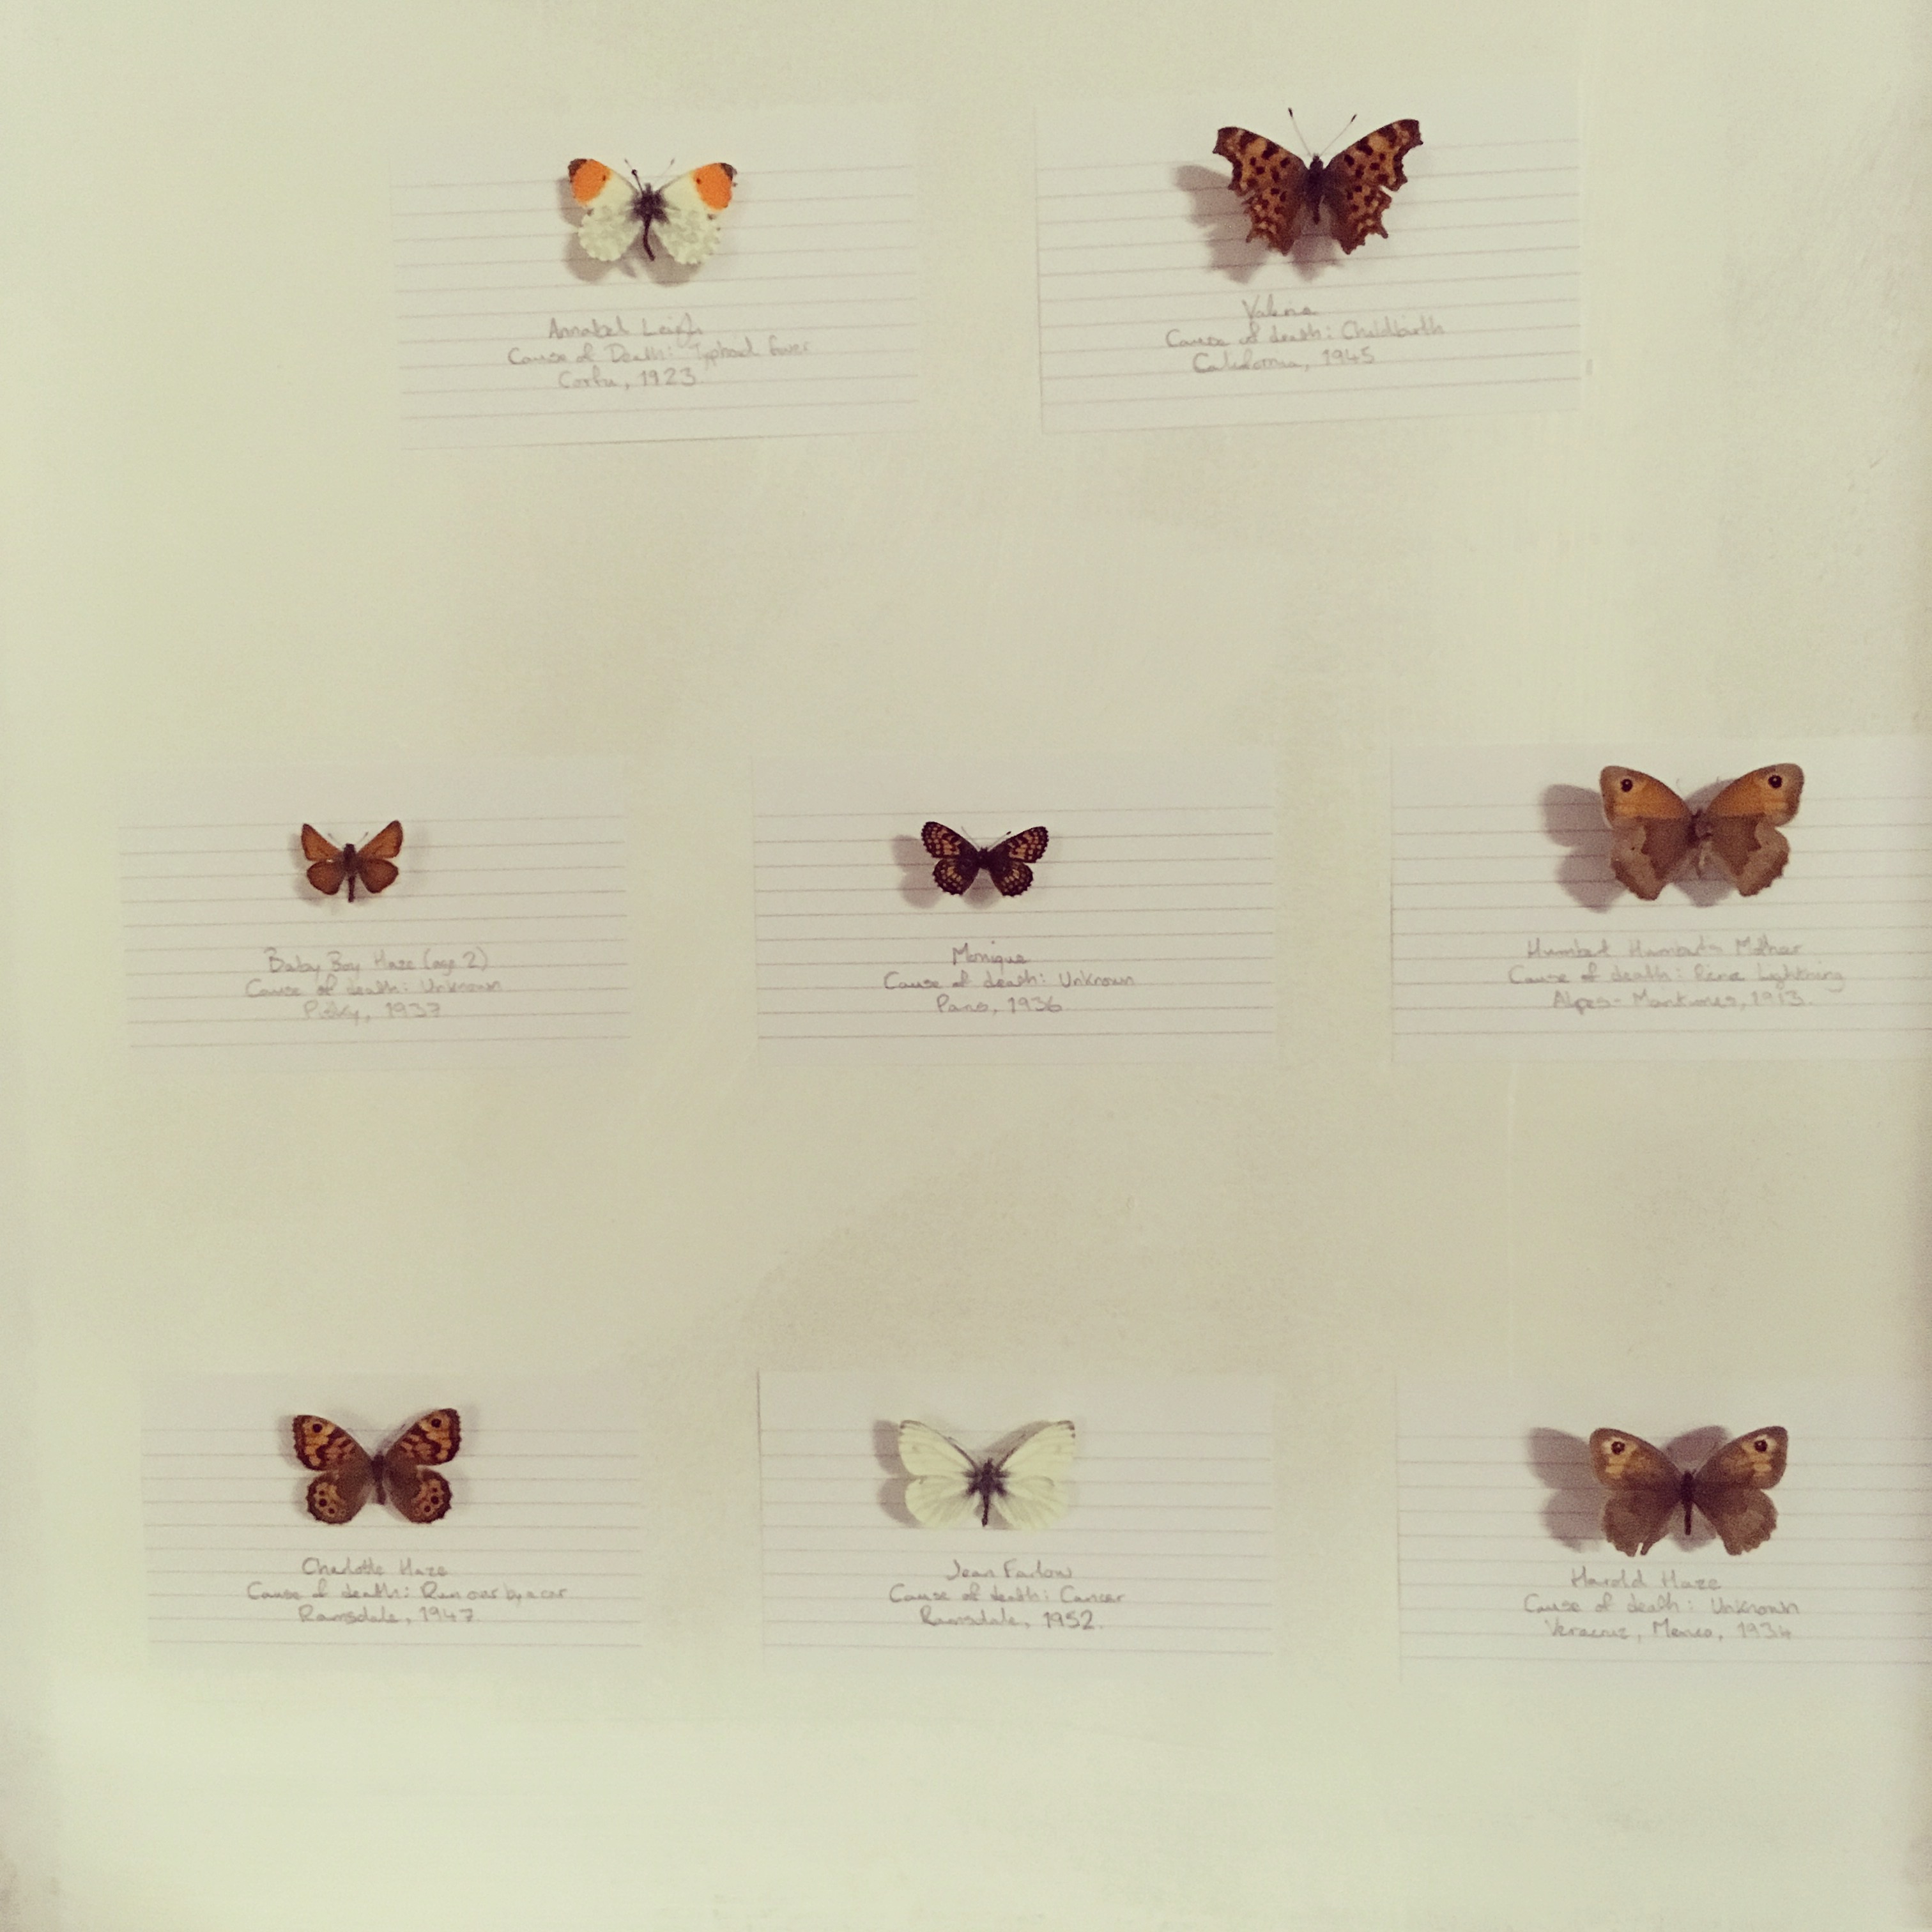 Annabel Leigh
Cause of Death: Typhoid fever
Corfu, 1923
Valeria
Cause of death: Childbirth
California, 1945
Baby Boy Haze (age 2)
Cause of death: Unknown
Pisky, 1937
Monique
Cause of death: Unknown
Paris, 1936
Humbert Humbert's Mother
Cause of death: Picnic, Lightning
Alpes-Maritimes, 1913.
Charlotte Haze
Cause of death: Run over by a car
Ramsdale, 1947.
Jean Farlow
Cause of death: Cancer
Ramsdale, 1952.
Harold Haze
Cause of death: Unknown
Veracruz, Mexico, 1934